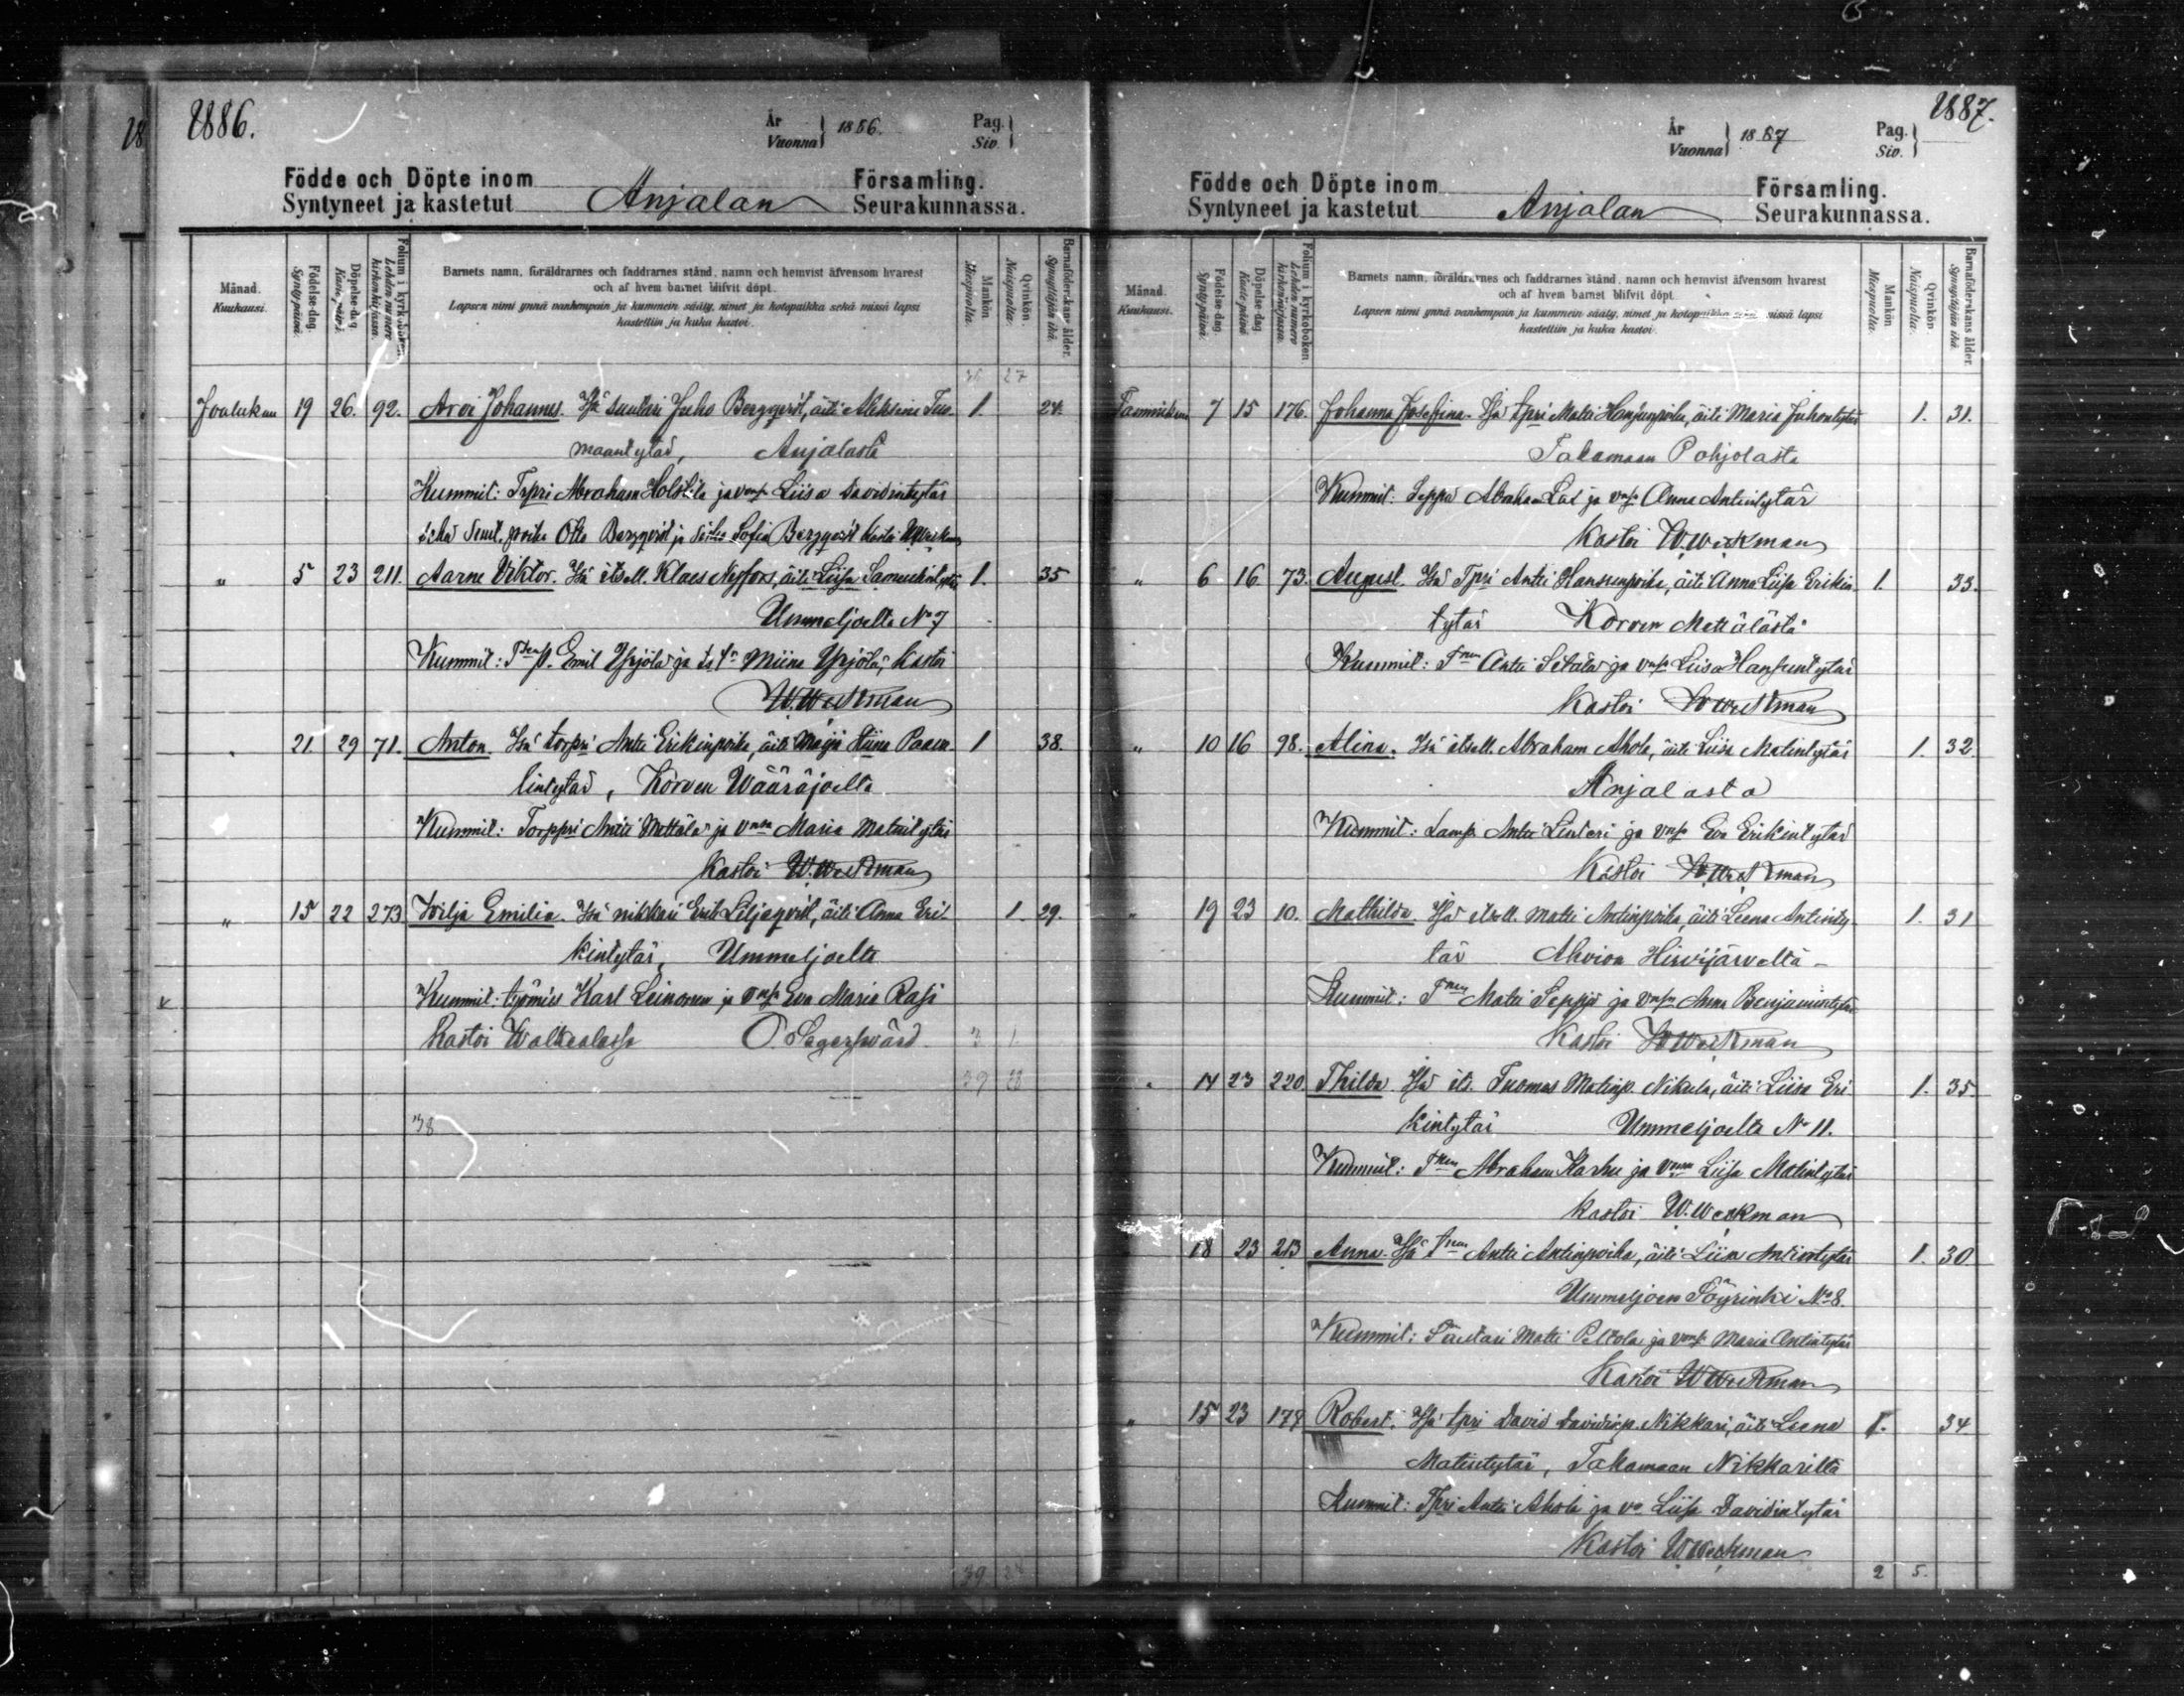 1886.
År
Vuonna 1886.
Pag.
Siv.
Födde och Döpte inom Församling.
Syntyneet ja kastetut Anjalan Seurakunnassa.
Månad. Kuukausi.
Födelse-dag. Syntypäivä.
Döpelse-dag. Kastepäivä.
Folium i kyrkoboken. Lehden numero kirkonkirjassa.
Barnets namn, föräldrarnes och faddrarnes stånd, namn och hemvist äfvensom hvarest
och af hvem barnet blifvit döpt.
Lapsen nimi ynnä vanhempain ja kummein sääty, nimet ja kotopaikka sekä missä lapsi
kastettiin ja kuka kastoi.
Mankön Miespuolia.
Qvinkön. Naispuolia.
Barnaföderskans ålder. Synnyttäjän ikä.
27
Joulukuu 19 26. 92. Arvi Johannes. Isä suutari Juho Bergqvist, äiti Aleksina Tuo- 1. 24.
maantytär, Anjalasta
Kummit: Trpri Abraham Holstila ja vmsa Liisa Davidintytär
sekä Otto Bergqvist ja Sofia Bergqvist kastoi W Weckman
" 5 23 211. Aarne Viktor. Isä itsell. Klaes Nyfors, äiti Liisa Samuelintytär 1. 35
Ummeljoelta No 7
Kummit: Emil Yrjölä ja Miina Yrjölä, kastoi
W. Weckman
" 21. 29 71. Anton. Isä torpri Antti Erikinpoika, äiti Maija Stiina Paava- 1 38.
lintytär, Körven Wääräjoelta
Kummit: Torppri Antti Mettälä ja vmsa Maria Matintytär
Kastoi W. Weckman
" 15 22 273 Wilja Emilia. Isä nikkari Erik Liljaqvist, äiti Anna Eri- 1. 29.
kintytär, Ummeljoelta
Kummit: työmies Karl Leinonen ja vmsa Eva Maria Rasi
Kastoi Walkealassa O. Segersvärd. 1.
39 28
38
39
1887.
År
Vuonna 1887
Pag.
Siv.
Födde och Döpte inom Församling.
Syntyneet ja kastetut Anjalan Seurakunnassa.
Månad. Kuukausi.
Födelse-dag. Syntypäivä.
Döpelse-dag. Kastepäivä
Folium i kyrkoboken. Lehden numero kirkonkirjassa.
Barnets namn, föräldrarnes och faddrarnes stånd, namn och hemvist äfvensom hvarest
och af hvem barnet blifvit döpt.
Lapsen nimi ynnä vanhempain ja kummein sääty, nimet ja kotopaikka sekä missä lapsi
kastettiin ja kuka kastoi.
Mankön Miespuolia.
Qvinkön. Naispuolia.
Barnaföderskans ålder. Synnyttäjän ikä.
Tammikuu 7 15 176. Johanna Josefina. Isä tpri Matti Hansunpoika, äiti Maria Juhontytär 1. 31.
Takamaan Pohjolasta
Kummit: Seppä Abraham ja vmsa Anna Antintytär
Kastoi W. Weckman
" 6 16 73. August. Isä Tpri Antti Hansunpoika, äiti Anna Liisa Erikin- 1. 33.
tytär Körven Mettälästä
Kummit: Antti Setälä ja vmsa Liisa Hansuntytär
Kastoi W Weckman
" 10 16 98. Alina. Isä itsell. Abraham Ahola, äiti Liisa Matintytär 1. 32.
Anjalasta
Kummit: Lamp. Antti ja vmsa Eva Erikintytär
Kastoi W Weckman
" 19 23 10. Mathilda. Isä itsell. Matti Antinpoika, äiti Leena Antinty- 1. 31
tär Ahvion Hirvijärveltä
Kummit: Matti Seppä ja vmsa Anna Benjamintytär
Kastoi W Weckman
" 14 23 220. Thilda. Isä its. Tuomas Matinp. Nikula, äiti Liisa Eri- 1. 35.
kintytär Ummeljoelta No 11.
Kummit: Abraham Karhu ja vmsa Liisa Matintytär
kastoi W. Weckman
18 23 213 Anna. Isä Antti Antinpoika, äiti Liisa Antintytär 1. 30
Ummeljoen Töyrinki No 8.
Kummit: Matti Peltola ja vmsa Maria Antintytär
Kastoi W Weckman
" 15 23 178 Robert. Isä tpri David Davidinp. Nikkari, äiti Leena 1. 34
Matintytär, Takamaan Nikkarilta
Kummit: Tpri Antti Ahola ja va Liisa Davidintytär
Kastoi W Weckman
2 5.